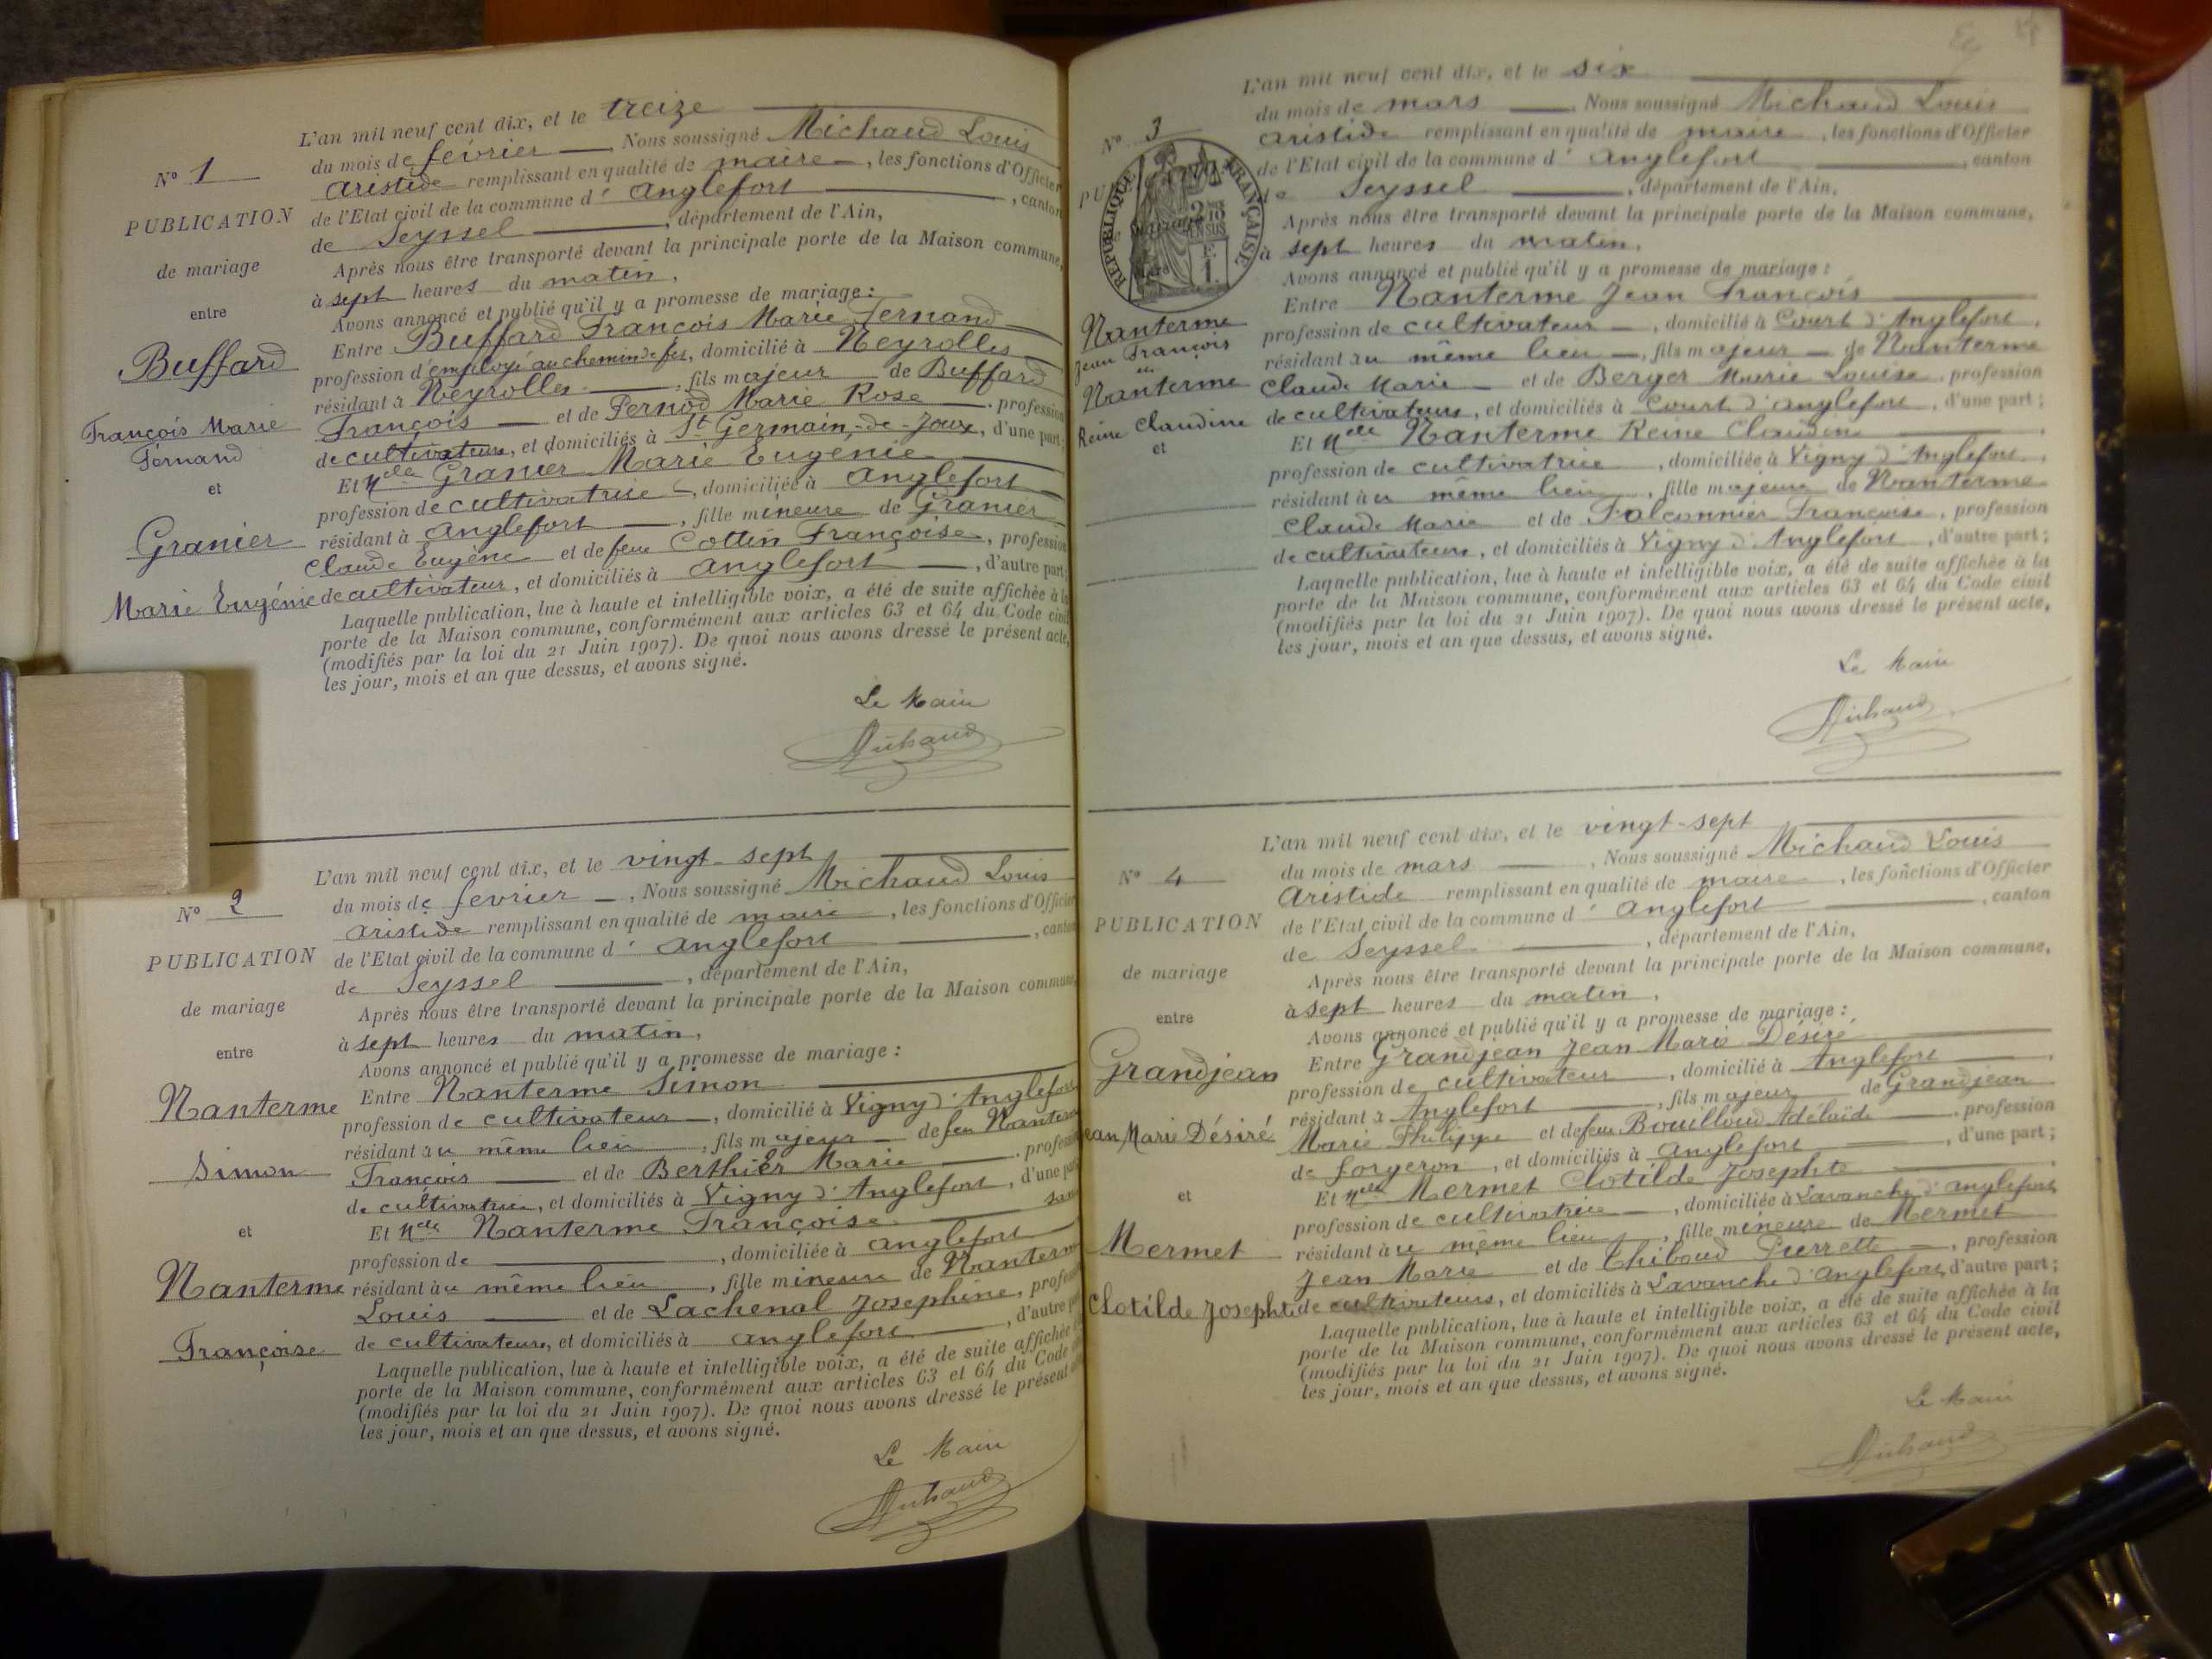 L'an mil neuf cent dix, et le treize
du mois de février, Nous soussigné Michaud Louis
Aristide remplissant en qualité de maire, les fonctions d'Officier
de l'Etat civil de la commune d' Anglefort, canton
de Seyssel, département de l'Ain,
Après nous être transporté devant la principale porte de la Maison commune,
à sept heures du matin,
Avons annoncé et publié qu'il y a promesse de mariage :
Entre Buffard François Marie Fernand
profession d'employé au chemin de fer, domicilié à Neyrolles
résidant à Neyrolles, fils majeur de Buffard
François et de Pernod Marie Rose, profession
de cultivateurs, et domiciliés à St Germain-de-Joux, d'une part;
Et Melle Granier Marie Eugénie
profession de cultivatrice, domiciliée à Anglefort
résidant à Anglefort, fille mineure de Granier
Claude Eugène et de feue Cottin Françoise, profession
de cultivateur, et domiciliés à Anglefort, d'autre part;
Laquelle publication, lue à haute et intelligible voix, a été de suite affichée à la
porte de la Maison commune, conformément aux articles 63 et 64 du Code civil
(modifiés par la loi du 21 Juin 1907). De quoi nous avons dressé le présent acte,
les jour, mois et an que dessus, et avons signé.
Le Maire
Michaud
N° 1
PUBLICATION
de mariage
entre
Buffard
François Marie
Fernand
et
Granier
Marie Eugénie
L'an mil neuf cent dix, et le vingt-sept
du mois de fevrier, Nous soussigné Michaud Louis
Aristide remplissant en qualité de maire, les fonctions d'Officier
de l'Etat civil de la commune d' Anglefort, canton
de Seyssel, département de l'Ain,
Après nous être transporté devant la principale porte de la Maison commune,
à sept heures du matin,
Avons annoncé et publié qu'il y a promesse de mariage :
Entre Nanterme Simon
profession de cultivateur, domicilié à Vigny d'Anglefort
résidant au même lieu, fils majeur de feu Nanterme
François et de Berthier Marie, profession
de cultivatrice, et domiciliés à Vigny d'Anglefort, d'une part
Et Melle Nanterme Françoise sans
profession de, domiciliée à Anglefort
résidant au même lieu, fille mineure de Nanterme
Louis et de Lachenal Josephine, profession
de cultivateurs, et domiciliés à Anglefort, d'autre part
Laquelle publication, lue à haute et intelligible voix, a été de suite affichée
porte de la Maison commune, conformément aux articles 63 et 64 du Code
(modifiés par la loi du 21 Juin 1907). De quoi nous avons dressé le présent
les jour, mois et an que dessus, et avons signé.
Le Maire
Michaud
N° 2
PUBLICATION
de mariage
entre
Nanterme
Simon
et
Nanterme
Françoise
L'an mil neuf cent dix, et le six
du mois de mars, Nous soussigné Michaud Louis
Aristide remplissant en qualité de maire, les fonctions d'Officier
de l'Etat civil de la commune d' Anglefort, canton
de Seyssel, département de l'Ain,
Après nous être transporté devant la principale porte de la Maison commune,
à sept heures du matin,
Avons annoncé et publié qu'il y a promesse de mariage :
Entre Nanterme Jean François
profession de cultivateur, domicilié à Court d'Anglefort,
résidant au même lieu, fils majeur de Nanterme
Claude Marie et de Berger Marie Louise, profession
de cultivateurs, et domiciliés à Court d'Anglefort, d'une part;
Et Melle Nanterme Reine Claudine
profession de cultivatrice, domiciliée à Vigny d'Anglefort,
résidant au même lieu, fille majeure de Nanterme
Claude Marie et de Falconnier Françoise, profession
de cultivateurs, et domiciliés à Vigny d'Anglefort, d'autre part;
Laquelle publication, lue à haute et intelligible voix, a été de suite affichée à la
porte de la Maison commune, conformément aux articles 63 et 64 du Code civil
(modifiés par la loi du 21 Juin 1907). De quoi nous avons dressé le présent acte,
les jour, mois et an que dessus, et avons signé.
Le Maire
Michaud
N° 3
RÉPUBLIQUE FRANÇAISE
Nanterme
Jean François
Nanterme
Reine Claudine
et
L'an mil neuf cent dix, et le vingt-sept
du mois de mars, Nous soussigné Michaud Louis
Aristide remplissant en qualité de maire, les fonctions d'Officier
de l'Etat civil de la commune d' Anglefort, canton
de Seyssel, département de l'Ain,
Après nous être transporté devant la principale porte de la Maison commune,
à sept heures du matin,
Avons annoncé et publié qu'il y a promesse de mariage :
Entre Grandjean Jean Marie Désiré
profession de cultivateur, domicilié à Anglefort,
résidant à Anglefort, fils majeur de Grandjean
Marie Philippe et de feue Bouilloud Adélaïde, profession
de forgeron, et domiciliés à Anglefort, d'une part;
Et Melle Mermet Clotilde Josephte
profession de cultivatrice, domiciliée à Lavanche d'Anglefort
résidant au même lieu, fille mineure de Mermet
Jean Marie et de Thiboud Pierrette, profession
de cultivateurs, et domiciliés à Lavanche d'Anglefort, d'autre part;
Laquelle publication, lue à haute et intelligible voix, a été de suite affichée à la
porte de la Maison commune, conformément aux articles 63 et 64 du Code civil
(modifiés par la loi du 21 Juin 1907). De quoi nous avons dressé le présent acte,
les jour, mois et an que dessus, et avons signé.
Le Maire
Michaud
N° 4
PUBLICATION
de mariage
entre
Grandjean
Jean Marie Désiré
et
Mermet
Clotilde Josephte